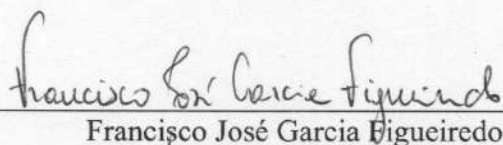 Francisco José Garcia Figueiredo
Francisco José Garcia Figueiredo